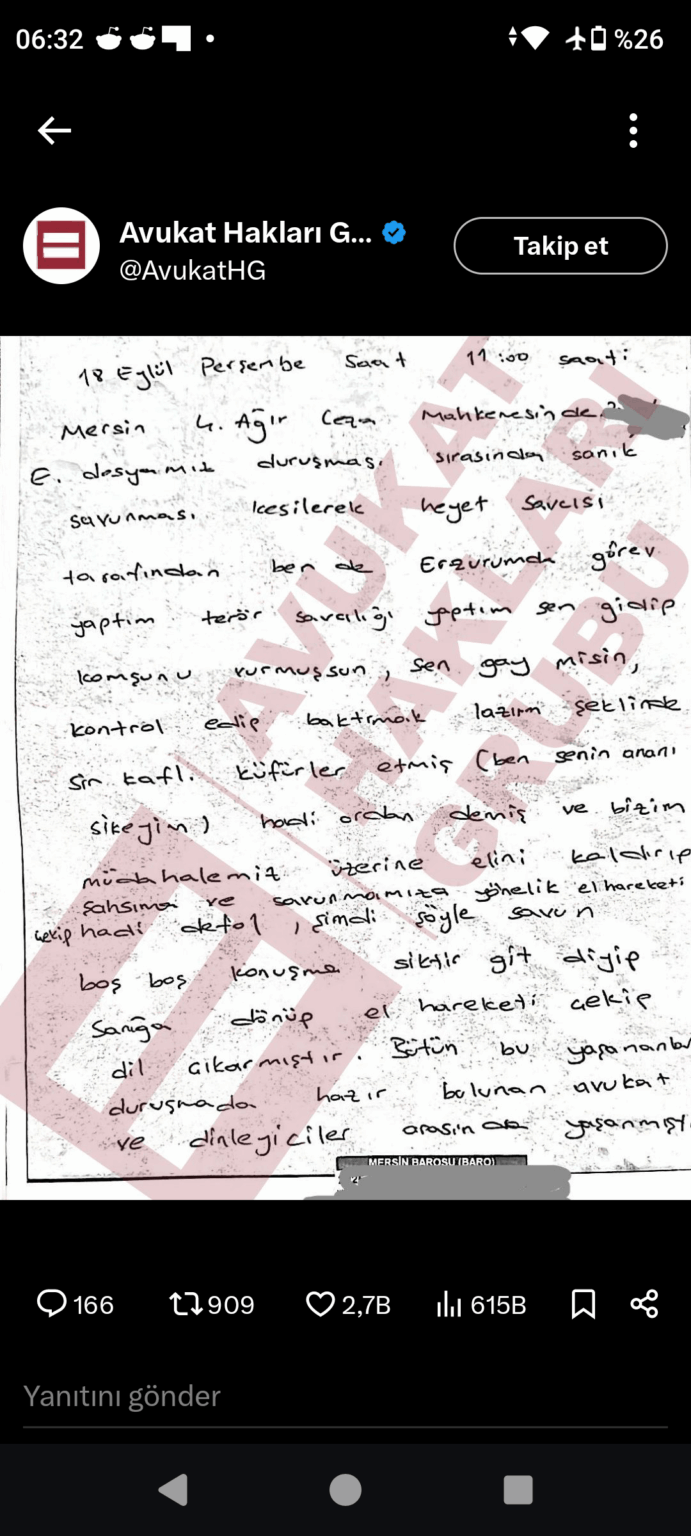 06:32
%26
Avukat Hakları G...
@AvukatHG
Takip et
AVUKAT
HAKLARI
GRUBU
18 Eylül Perşembe Saat 11:00 saati
Mersin 4. Ağır Ceza Mahkemesinde
E. dosyamız duruşması sırasında sanık
savunması kesilerek heyet Savcısı
tarafından ben de Erzurumda görev
yaptım terör savcılığı yaptım sen gidip
komşunu vurmuşsun, sen gay misin,
kontrol edip baktırmak lazım şeklinde
sin kaflı küfürler etmiş (ben senin ananı
sikeyim) hadi ordan demiş ve bizim
müdahalemiz üzerine elini kaldırıp
şahsıma ve savunmamıza yönelik el hareketi
çekip hadi defol, şimdi söyle savun
boş boş konuşma siktir git diyip
Sanığa dönüp el hareketi çekip
dil çıkarmıştır. Bütün bu yaşananla
duruşmada hazır bulunan avukat
ve dinleyiciler arasında yaşanmışt
MERSİN BAROSU (BARO)
166
909
2,7B
615B
Yanıtını gönder